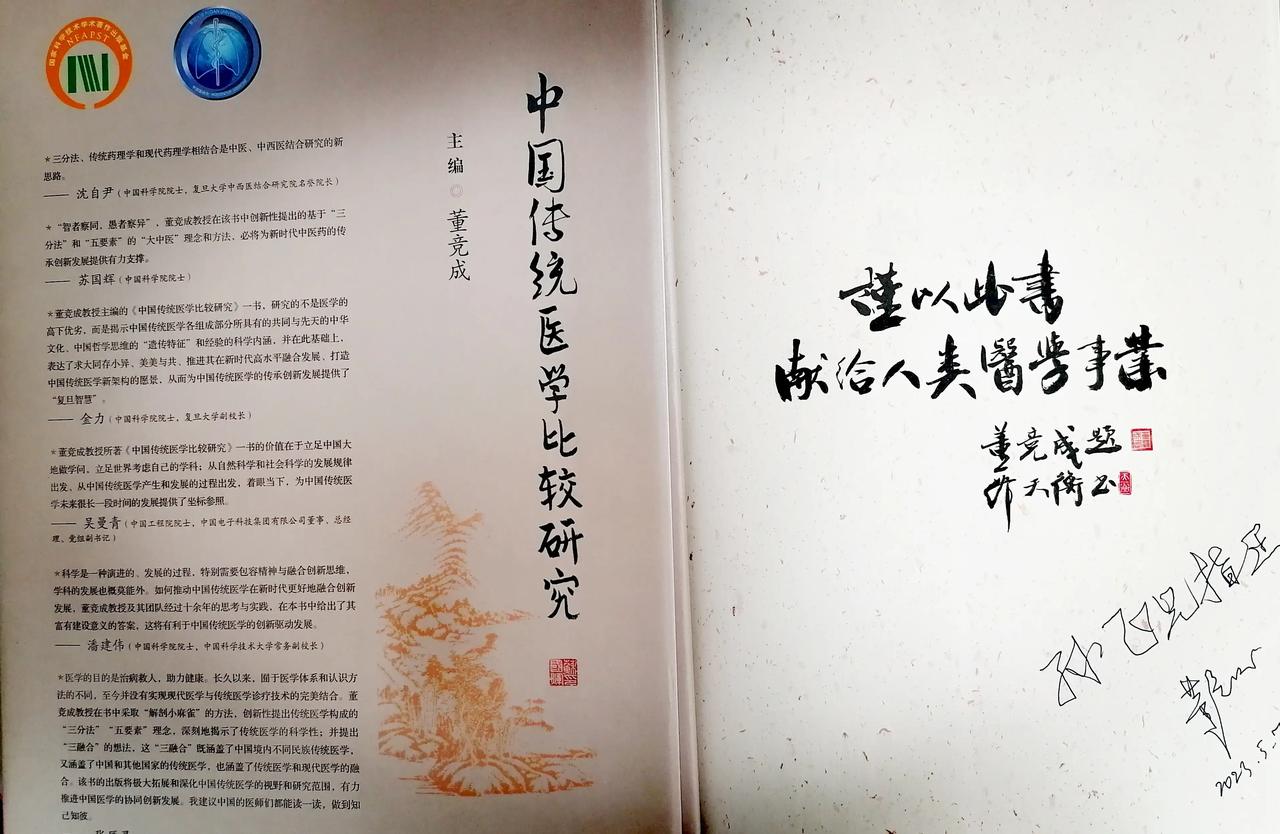 国家科学技术学术著作出版基金
NFAPST
中国传统医学比较研究
主编◎董竞成
*三分法、传统药理学和现代药理学相结合是中医、中西医结合研究的新
思路。
—— 沈自尹（中国科学院院士，复旦大学中西医结合研究院名誉院长）
*“智者察同，愚者察异”，董竞成教授在该书中创新性提出的基于“三
分法”和“五要素”的“大中医”理念和方法，必将为新时代中医药的传
承创新发展提供有力支撑。
—— 苏国辉（中国科学院院士）
*董竞成教授主编的《中国传统医学比较研究》一书，研究的不是医学的
高下优劣，而是揭示中国传统医学各组成部分所具有的共同与先天的中华
文化、中国哲学思维的“遗传特征”和经验的科学内涵，并在此基础上，
表达了求大同存小异、美美与共、推进其在新时代高水平融合发展、打造
中国传统医学新架构的愿景，从而为中国传统医学的传承创新发展提供了
“复旦智慧”。
—— 金力（中国科学院院士，复旦大学副校长）
*董竞成教授所著《中国传统医学比较研究》一书的价值在于立足中国大
地做学问，立足世界考虑自己的学科；从自然科学和社会科学的发展规律
出发、从中国传统医学产生和发展的过程出发，着眼当下，为中国传统医
学未来很长一段时间的发展提供了坐标参照。
—— 吴曼青（中国工程院院士，中国电子科技集团有限公司董事、总经
理、党组副书记）
*科学是一种演进的、发展的过程，特别需要包容精神与融合创新思维，
学科的发展也概莫能外。如何推动中国传统医学在新时代更好地融合创新
发展，董竞成教授及其团队经过十余年的思考与实践，在本书中给出了其
富有建设意义的答案，这将有利于中国传统医学的创新驱动发展。
—— 潘建伟（中国科学院院士，中国科学技术大学常务副校长）
*医学的目的是治病救人，助力健康。长久以来，囿于医学体系和认识方
法的不同，至今并没有实现现代医学与传统医学诊疗技术的完美结合。董
竞成教授在书中采取“解剖小麻雀”的方法，创新性提出传统医学构成的
“三分法”“五要素”理念，深刻地揭示了传统医学的科学性；并提出
“三融合”的想法，这“三融合”既涵盖了中国境内不同民族传统医学，
又涵盖了中国和其他国家的传统医学，也涵盖了传统医学和现代医学的融
合。该书的出版将极大拓展和深化中国传统医学的视野和研究范围，有力
推进中国医学的协同创新发展。我建议中国的医师们都能读一读，做到知
己知彼。
谨以此書
献给人类醫学事業
董竞成题
韩天衡书
孙飞兄指正
2023.5.